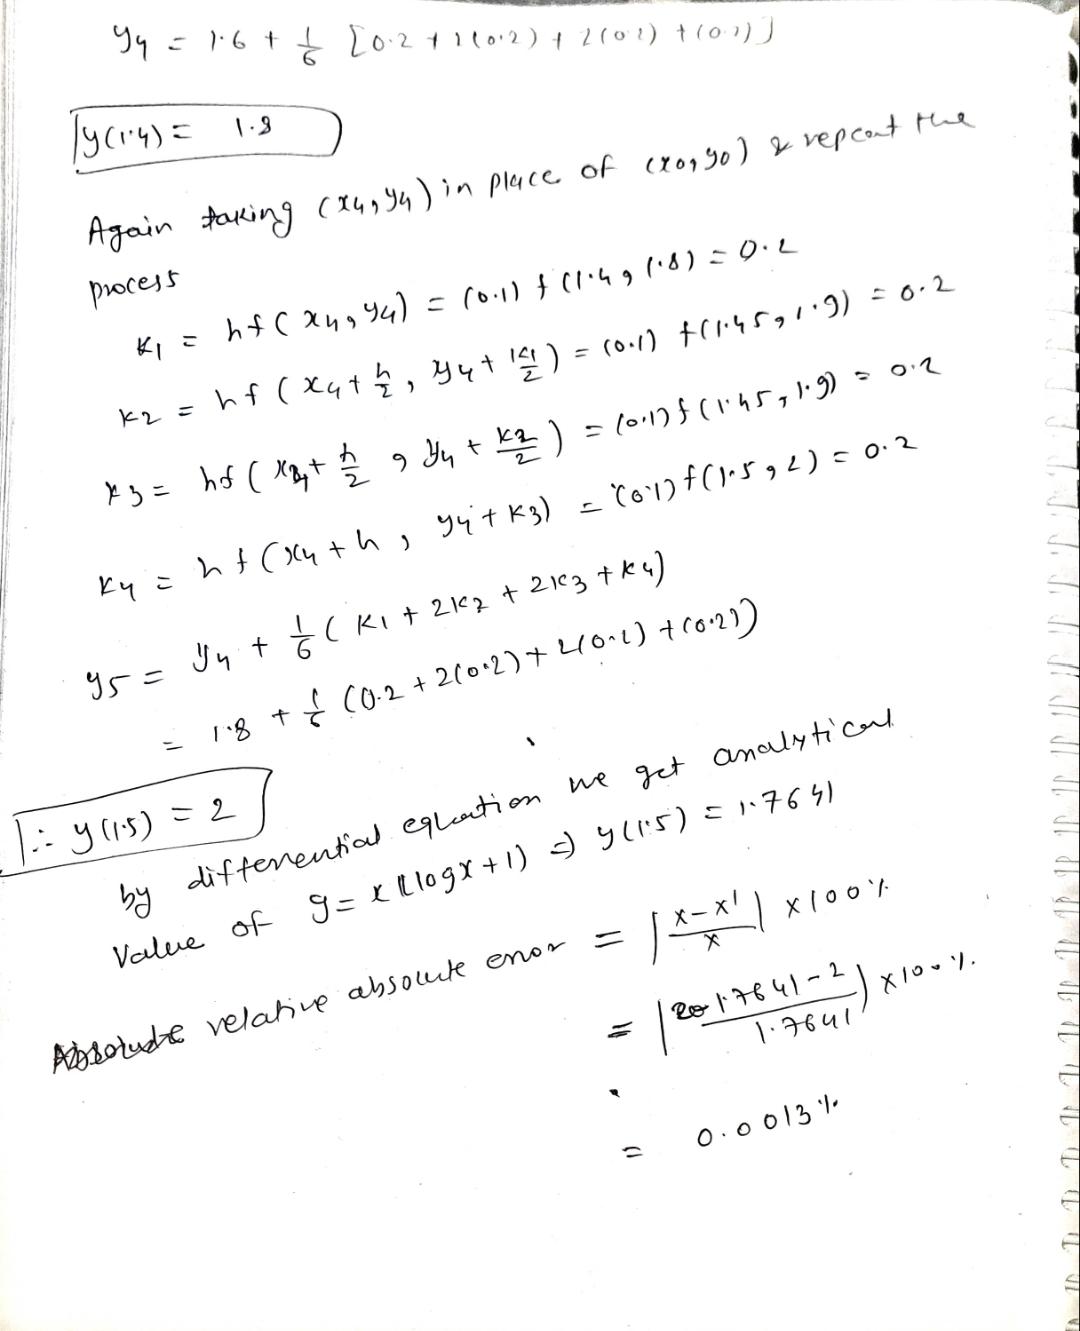 y4 = 1.6 + 1/6 [0.2 + 2(0.2) + 2(0.2) + (0.2)]
y(1.4) = 1.8
Again taking (x4, y4) in place of (x0, y0) & repeat the
process
K1 = hf(x4, y4) = (0.1) f(1.4, 1.8) = 0.2
K2 = hf(x4 + h/2, y4 + K1/2) = (0.1) f(1.45, 1.9) = 0.2
K3 = hf(x4 + h/2, y4 + K2/2) = (0.1) f(1.45, 1.9) = 0.2
K4 = hf(x4 + h, y4 + K3) = (0.1) f(1.5, 2) = 0.2
y5 = y4 + 1/6 (K1 + 2K2 + 2K3 + K4)
= 1.8 + 1/6 (0.2 + 2(0.2) + 2(0.2) + (0.2))
∴ y(1.5) = 2
by differential equation we get analytical
Value of y = x (logx + 1) ⇒ y(1.5) = 1.7641
relative absolute error = |x - x'/x| × 100%
= |1.7641 - 2/1.7641| × 100%
= 0.0013%